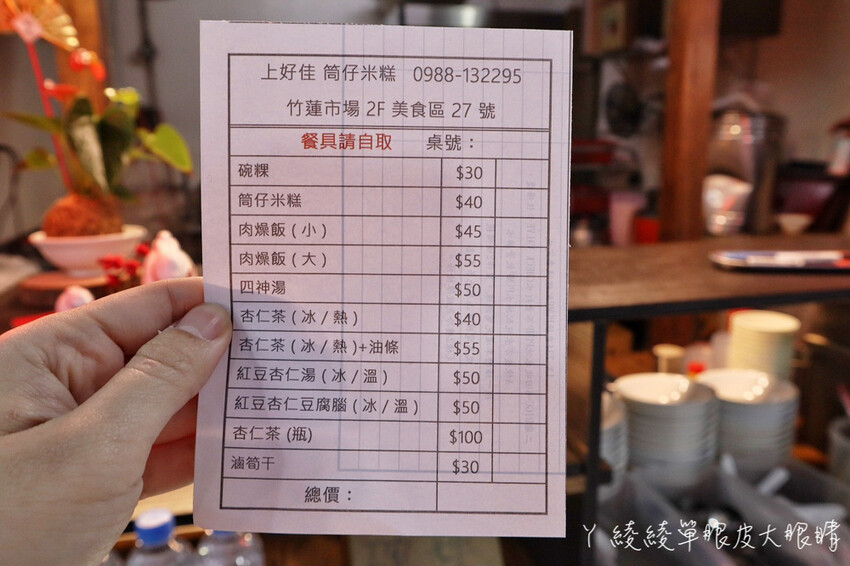 上好佳 筒仔米糕 0988-132295
竹蓮市場 2F 美食區 27 號
餐具請自取 桌號：
碗粿 $30
筒仔米糕 $40
肉燥飯 ( 小 ) $45
肉燥飯 ( 大 ) $55
四神湯 $50
杏仁茶 ( 冰 / 熱 ) $40
杏仁茶 ( 冰 / 熱 )+油條 $55
紅豆杏仁湯 ( 冰 / 溫 ) $50
紅豆杏仁豆腐腦 ( 冰 / 溫 ) $50
杏仁茶 (瓶) $100
滷筍干 $30
總價：
ㄚ綾綾單眼皮大眼睛